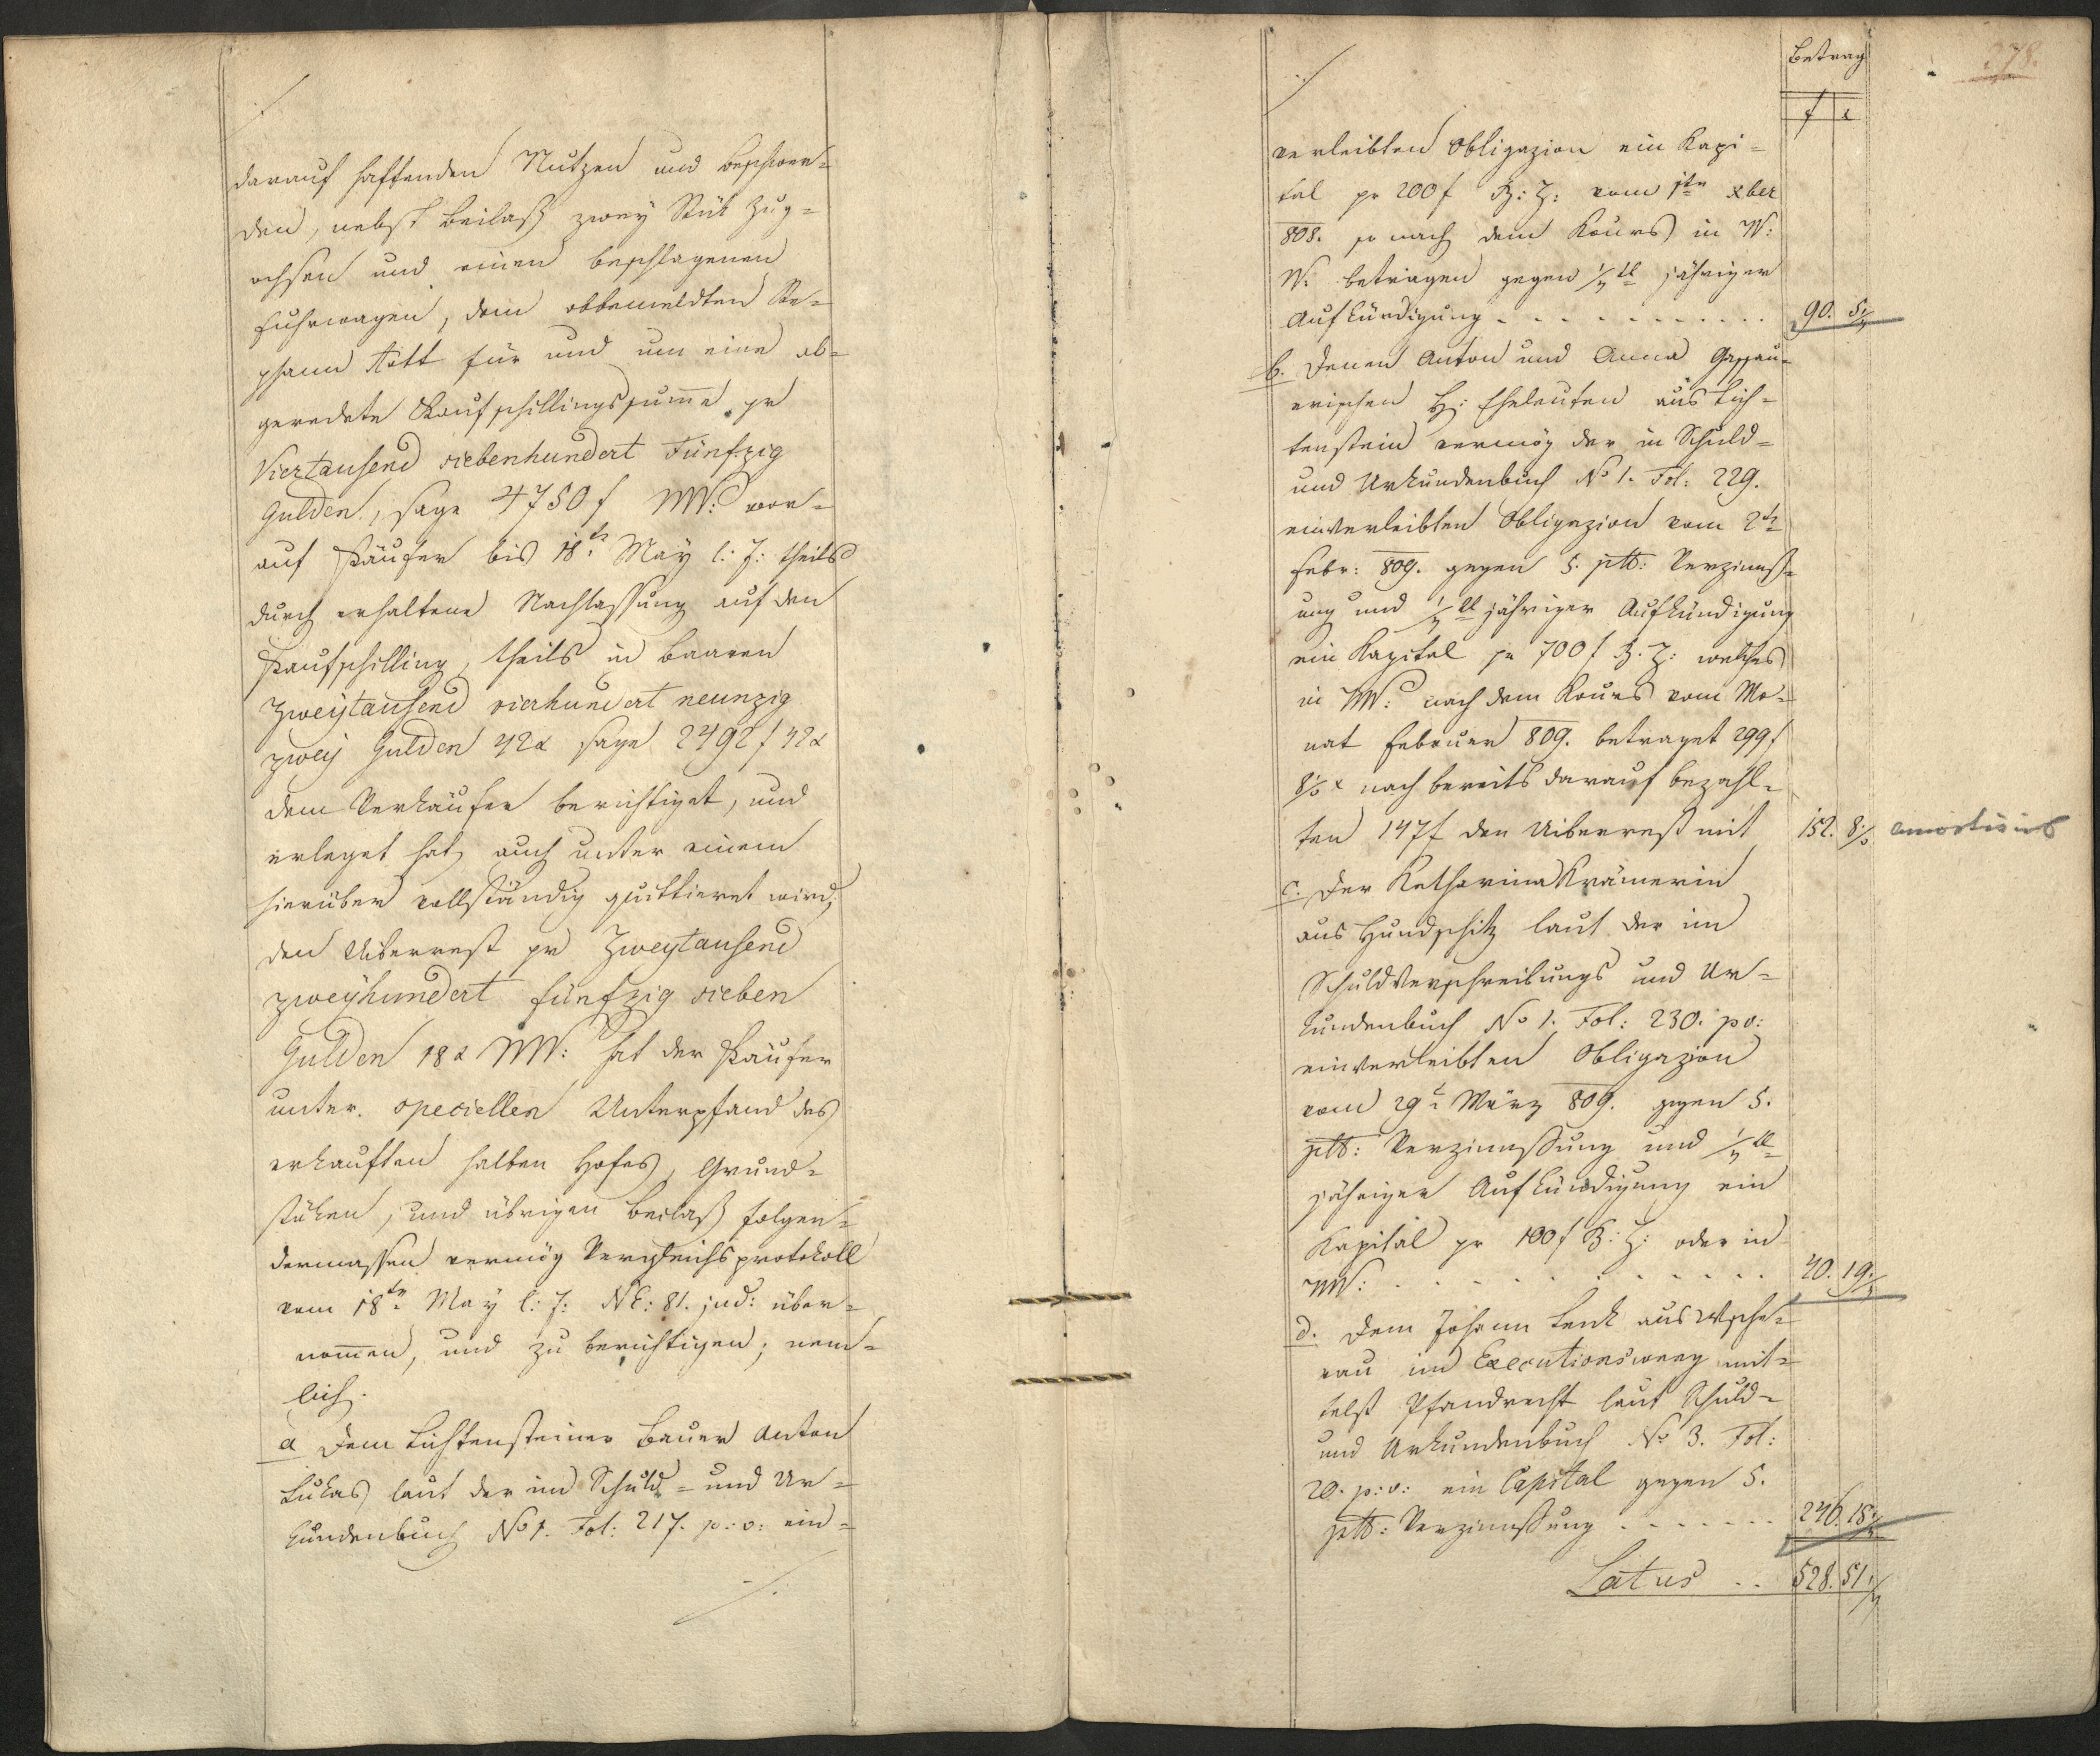 darauf haftenden Nutzen und Beschwer=
den, nebst Beilaß zwey Stük Zug=
ochsen und einen beschlagenen
Fuhrwagen, dem obbemeldten Ste=
phann Kött für und um eine ab=
geredete Kaufschillingssumme pr
Viertausend siebenhundert Fünfzig
Gulden, sage 4750 f WW: wor=
auf Käufer bis 18tn May l: J: theils
durch erhaltene Nachlassung auf den
Kaufschilling, theils in baaren
Zweytausend vierhundert neunzig
zwey Gulden 42x sage 2492 f 42x
dem Verkäufer berichtiget, und
erleget hat, auch unter einem
hierüber vollständig quittieret wird,
den Uiberrest pr Zweytausend
zweyhundert fünfzig sieben
Gulden 18x WW: hat der Käufer
unter speciellen Unterpfand des
erkauften halben Hofes, Grund=
stüken, und übrigen Beilaß folgen=
dermassen vermög Vergleichsprotokoll
vom 18tn May l: J: NE: 81. jud: über=
nommen, und zu berichtigen; nem=
lich.
a Dem Lichtensteiner Bauer Anton
Lukas laut der im Schuld= und Ur=
kundenbuch No 1. Fol: 217. p: v: ein=
./.
278.
Betrag
f x
./.
verleibten Obligazion ein Kapi=
tal pr 200 f B: Z: vom 1tn xber
808. so nach dem Kours in W:
W: betragen gegen 1/4tl jähriger
Aufkündigung . . . . . . . . . . 90. 5 1/4
b. Denen Anton und Anna
erischen H: Eheleuten aus Lich=
tenstein vermög der in Schuld=
und Urkundenbuch No 1. Fol: 229.
einverleibten Obligazion vom 2tn
Febr: 809. gegen 5. ptto: Verzinnß=
ung und 1/4tl jähriger Aufkündigung
ein Kapital pr 700 f B. Z: welches
in WW: nach dem Kours vom Mo=
nat Februar 809. betraget 299 f
8 x nach bereits darauf bezahl=
ten 147 f den Uiberrest mit 152. 8
c. Der Katharina Krämerin
aus Hundschitz laut der im
Schuldverschreibungs und Ur=
kundenbuch No 1. Fol: 230. pv:
einverleibten Obligazion
vom 29tn März 809. gegen 5.
ptto: Verzinnßung und 1/4tl
jähriger Aufkündigung ein
Kapital pr 100 f B: Z: oder in
WW: . . . . . . . . . . 40. 19
d. Dem Johann Lenk aus Wsche=
rau im Executionsweeg mit=
telst Pfandrecht laut Schuld=
und Urkundenbuch No 3. Fol:
20. p: v: ein Capital gegen 5.
ptto: Verzinnßung . . . . . . . 246. 18
Latus . . 528. 51 1/4